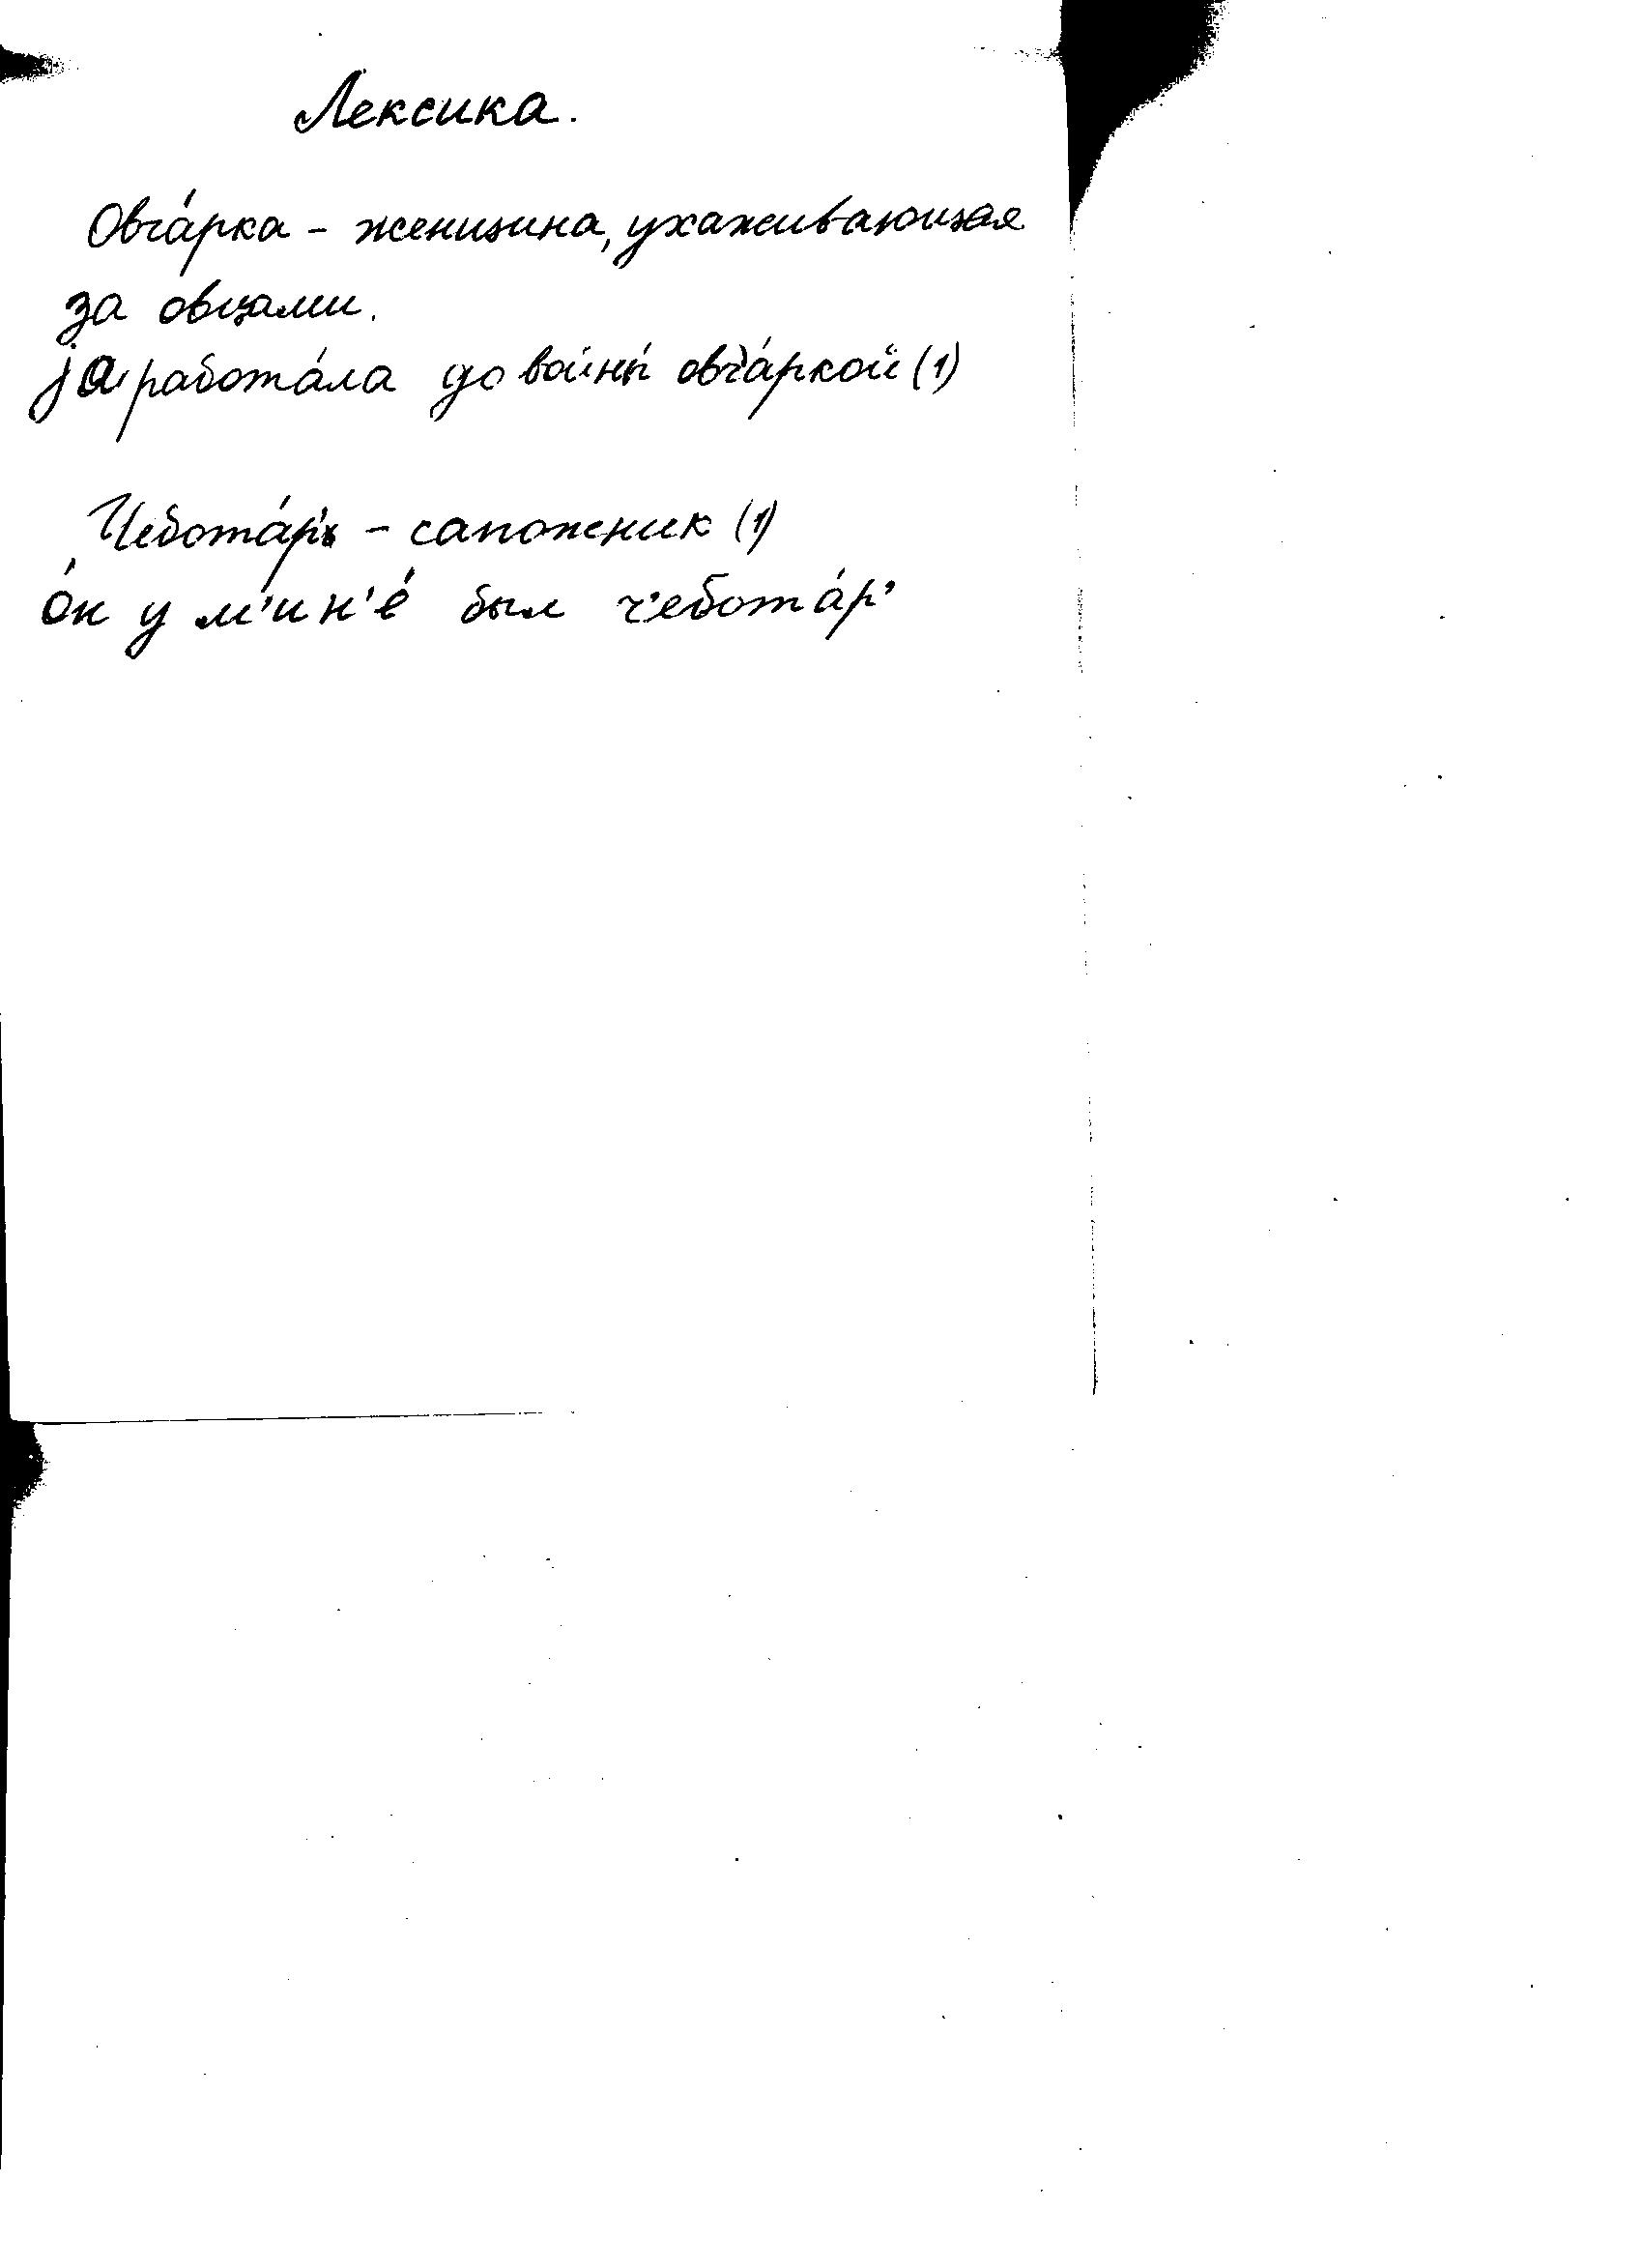 Лексика.
Овча́рка - женщина, ухаживающая
за овцами.
jа работа́ла до войны́ овч'а́ркой (1)
Чебота́рь - сапожник (1)
о́н у м'ин'е́ был ч'ебота́р'